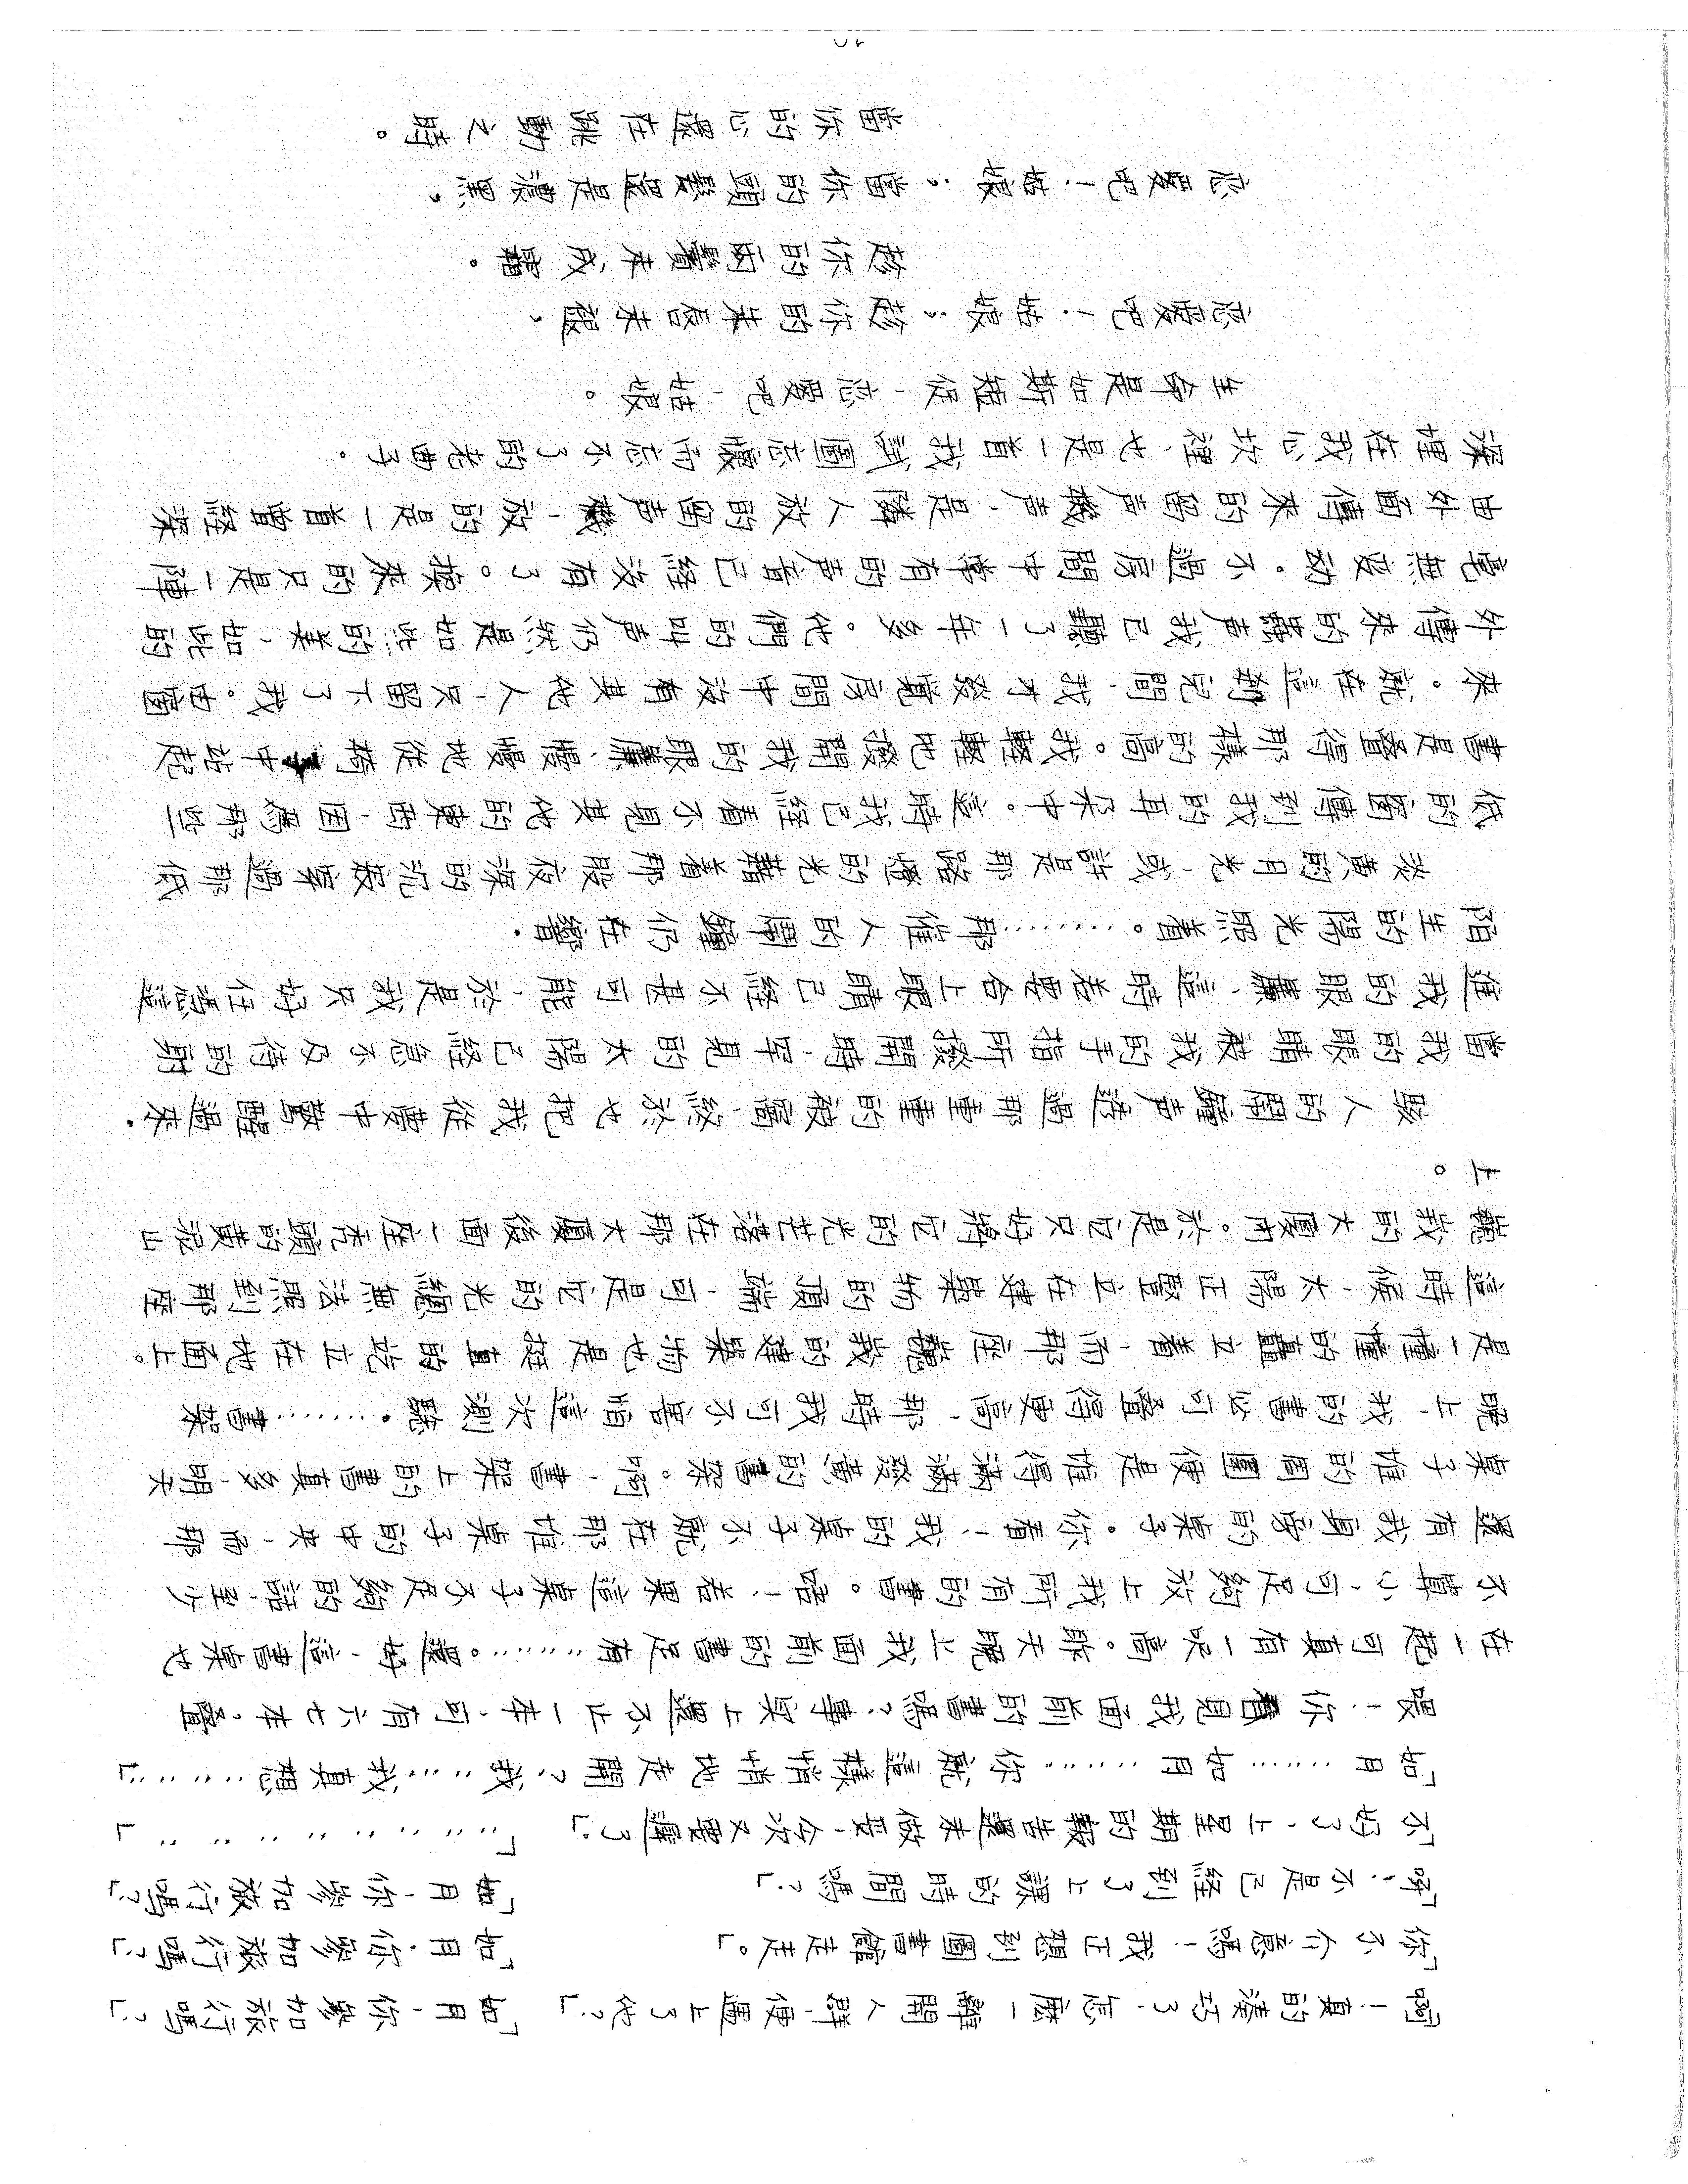 「啊！真的湊巧了，怎麼一離開人群，便遇上了他？」 「如月，你參加旅行嗎？」
「你不介意嗎！我正想到圖書館走走。」 「如月，你參加旅行嗎？」
「呀！不是已經到了上課的時間嗎？」 「如月，你參加旅行嗎？」
「不好了，上星期的報告還未做妥，今次又要遲了。」 「………………」
「如月………如月………你就這樣悄悄地走開？我……我真想………」
喂！你看見我面前的書嗎？書桌上還不止一本，可有六七本，疊
在一起可真有一呎高。昨天晚上我面前的書足有………。還好，這書桌也
不算小，可足夠放上我所有的書。唔！若果這桌子不足夠的話，至少
還有我身旁的桌子。你看！我的桌子不就在那堆桌子的中央，而那
桌子堆的周圍便是堆得滿滿發黃的書架。啊！書架上的書真多，明天
晚上，我的書必可疊得更高，那時我可不害怕這次測驗。………書架
是一幢幢的矗立着，而那座巍峩的建築物也是挺直的屹立在地面上。
這時候，太陽正豎立在建築物的頂端，可是它的光線無法照到那座
巍峩的大廈內。於是它只好將它的光芒落在那大廈後面一座禿頭的黄泥山
上。
駭人的鬧鐘声透過那重重的被窩，終於也把我從夢中驚醒過來。
當我的眼睛被我的手指所撥開時，罕見的太陽已經急不及待的射
進我的眼簾，這時若要合上眼睛已經不甚可能，於是我只好任憑這
陌生的陽光照着。………那催人的鬧鐘仍在響。
淡黄的月光，或許是那路燈的光藉着那股夜深的沉寂穿過那低
低的窗傳到我的耳朵中。這時我已經看不見其他的東西，因爲那些
書是疊得那樣的高。我輕輕地撥開我的眼簾，慢慢地從椅中站起
來。就在這刹兒間，我才發覺房間中没有其他人，只留下了我。由窗
外傳來的蟲声我已聽了一年多。他們的叫声仍然是如此的美，如此的
毫無変动。不過房間中常有的声音已經沒有了。換來的只是一陣
由外面傳來的留声機声，是隣人放的留声機，放的是一首曾經深
深埋在我心坎裡，也是一首我試圖忘懷而忘不了的老曲子。
生命是如斯短促，恋愛吧，姑娘。
恋愛吧！姑娘；趁你的朱唇未褪，
趁你的兩鬢未成霜。
恋愛吧！姑娘；當你的頭髮還是濃黑，
當你的心還在跳動之時。
10